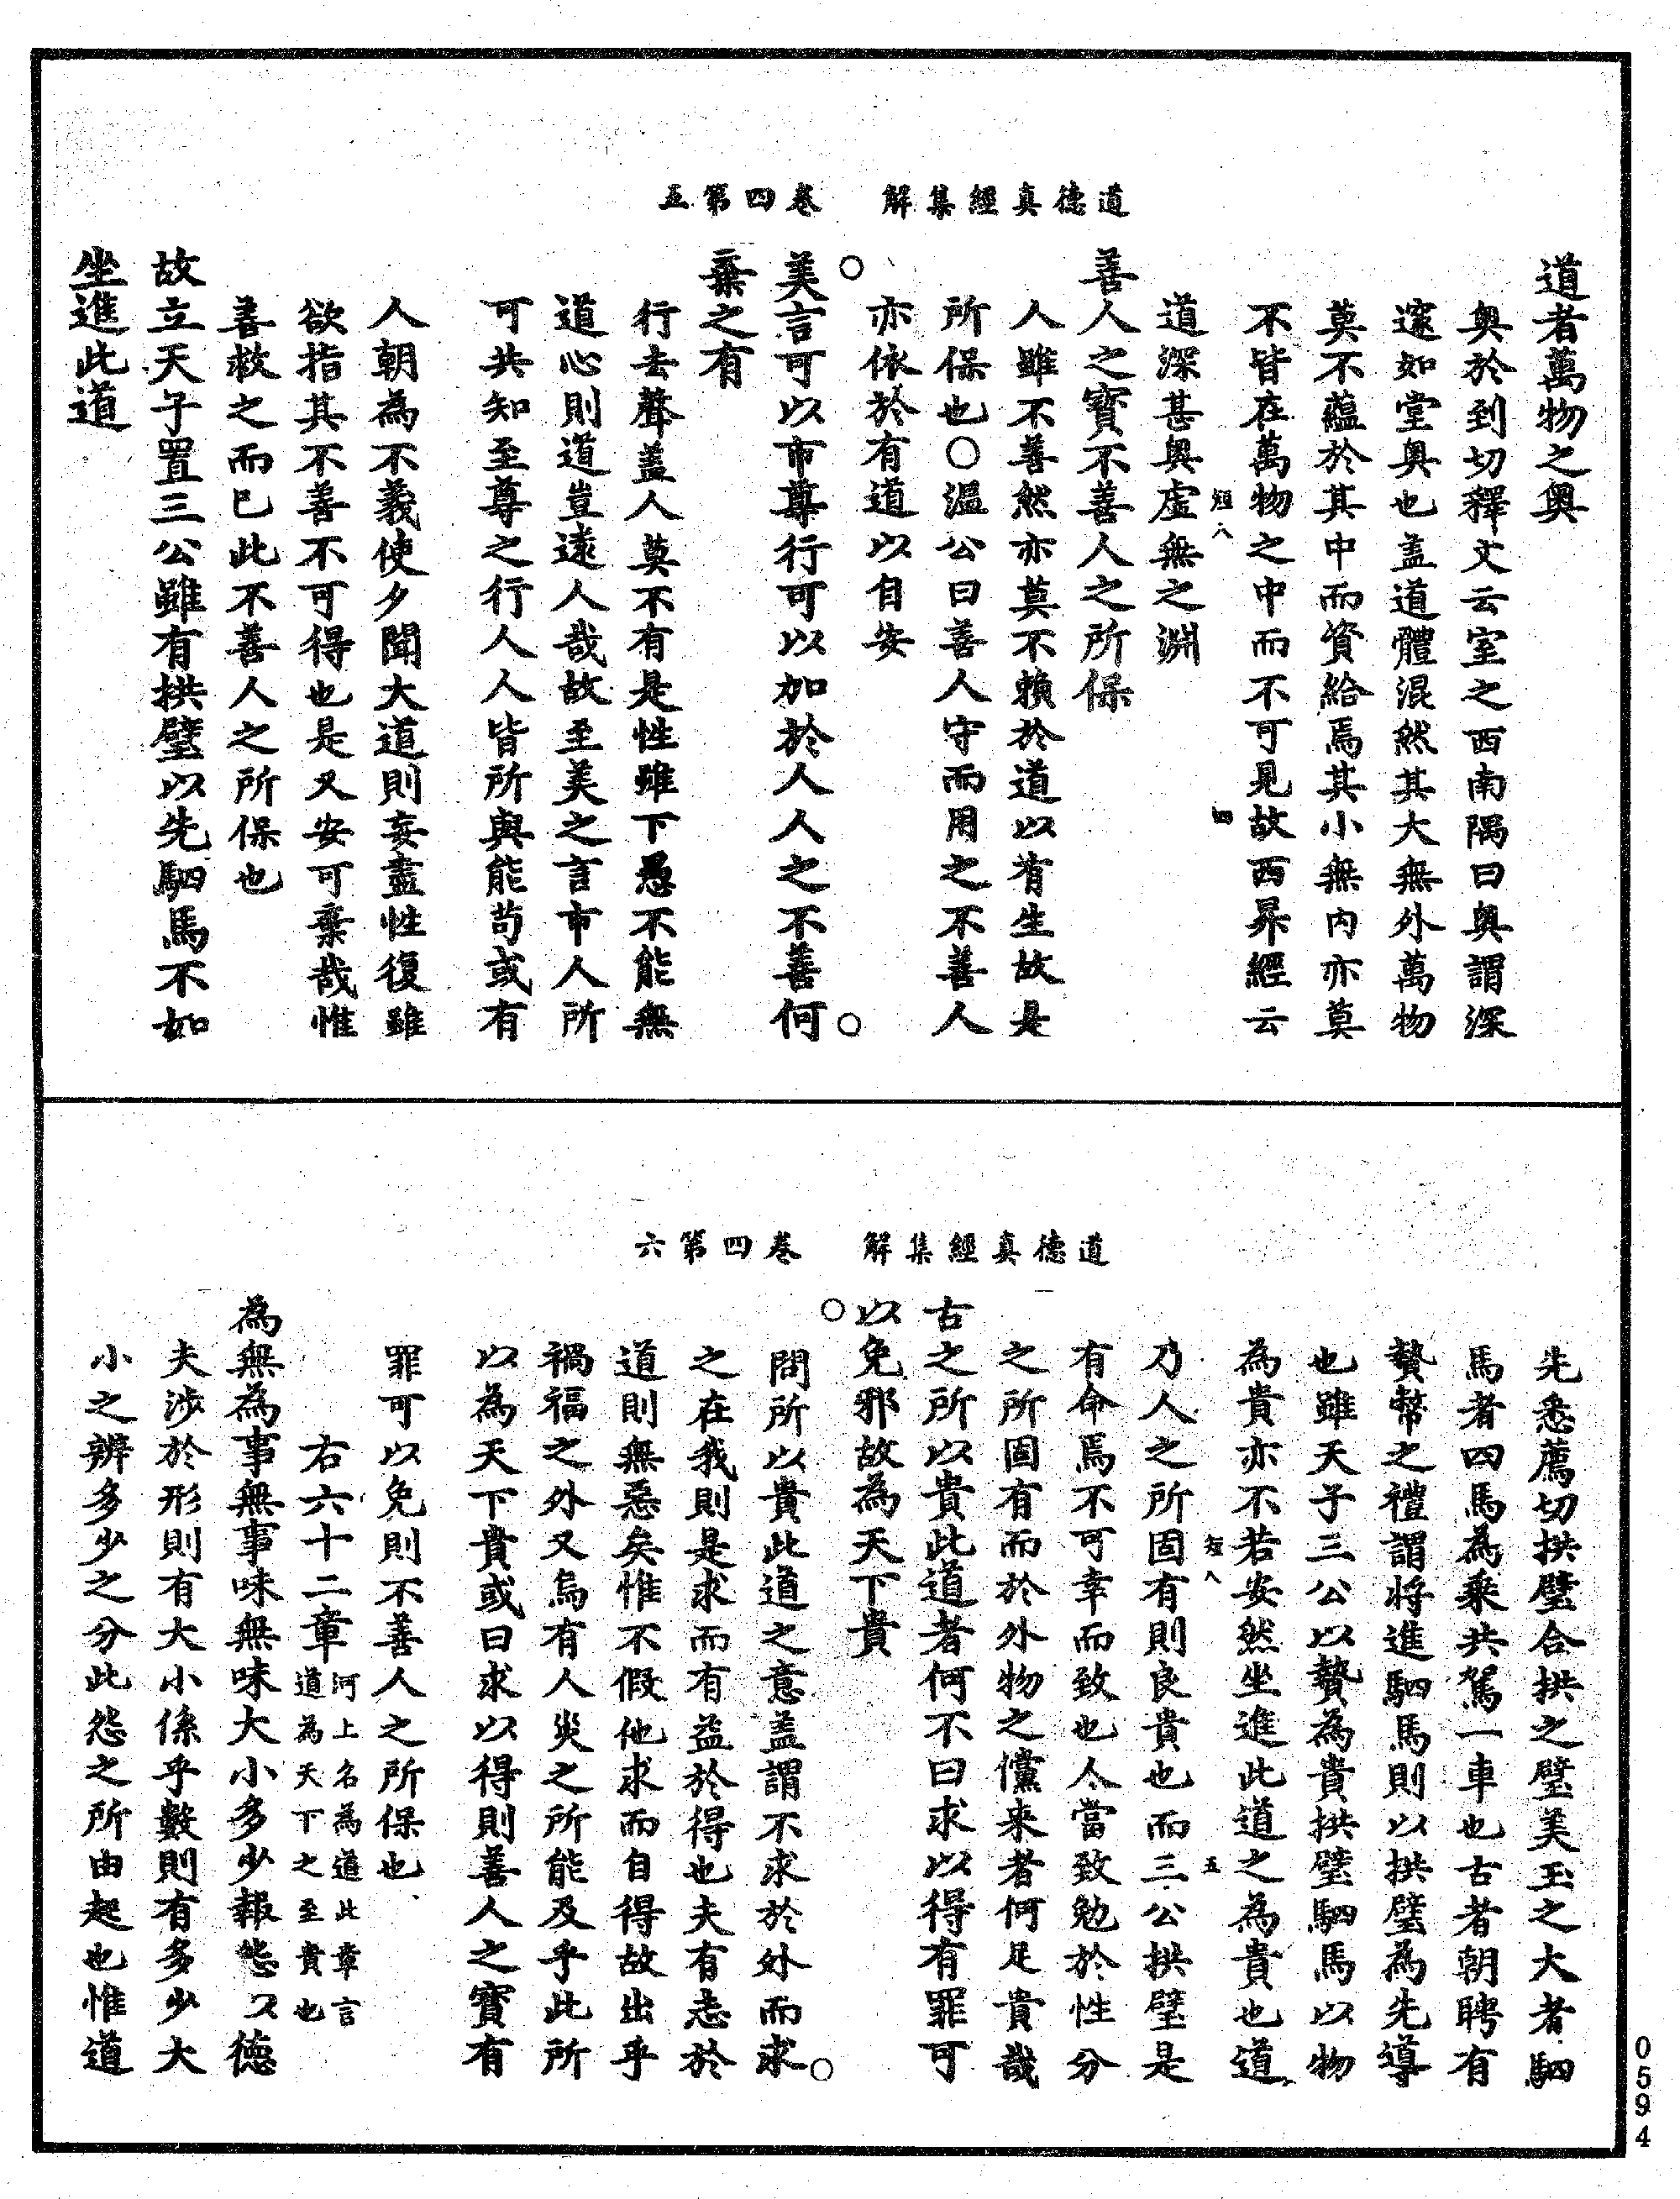 道德真經集解　卷四第五
道者萬物之奧
奥於到切釋文云室之西南隅曰奥謂深
邃如堂奥也盖道體混然其大無外萬物
莫不蘊於其中而資給焉其小無内亦莫
不皆在萬物之中而不可見故西昇經云
短八　四
道深甚奥虛無之淵
善人之寶不善人之所保
人雖不善然亦莫不賴於道以有生故是
所保也○溫公曰善人守而用之不善人
亦依於有道以自安
○美言可以市尊行可以加於人人之不善何○
棄之有
行去聲盖人莫不有是性雖下愚不能無
道心則道豈遠人哉故至美之言市人所
可共知至尊之行人人皆所與能苟或有
人朝為不義使夕聞大道則妄盡性復雖
欲指其不善不可得也是又安可棄哉惟
善救之而已此不善人之所保也
故立天子置三公雖有拱璧以先駟馬不如
坐進此道
道德真經集解　卷四第六
先悉薦切拱璧合拱之璧美玉之大者駟
馬者四馬為乘共駕一車也古者朝聘有
贄幣之禮謂將進駟馬則以拱璧為先導
也雖天子三公以贄為貴拱璧駟馬以物
為貴亦不若安然坐進此道之為貴也道
短八　五
乃人之所固有則良貴也而三公拱璧是
有命焉不可幸而致也人當致勉於性分
之所固有而於外物之儻来者何足貴哉
古之所以貴此道者何不曰求以得有罪可
○以免邪故為天下貴
問所以貴此道之意盖謂不求於外而求○
之在我則是求而有益於得也夫有志於
道則無惡矣惟不假他求而自得故出乎
禍福之外又烏有人災之所能及乎此所
以為天下貴或曰求以得則善人之寶有
罪可以免則不善人之所保也
右六十二章河上名為道此章言道為天下之至貴也
為無為事無事味無味大小多少報怨以德
夫涉於形則有大小係乎數則有多少大
小之辨多少之分此怨之所由起也惟道
0594